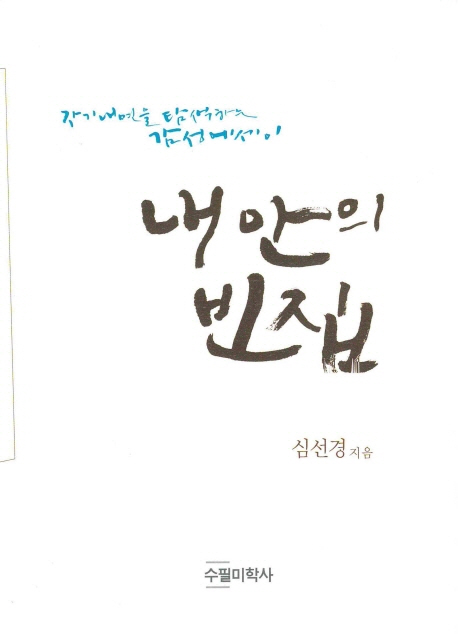 자기내면을 탐색하는
감성에세이
내 안의
빈집
심선경 지음
수필미학사